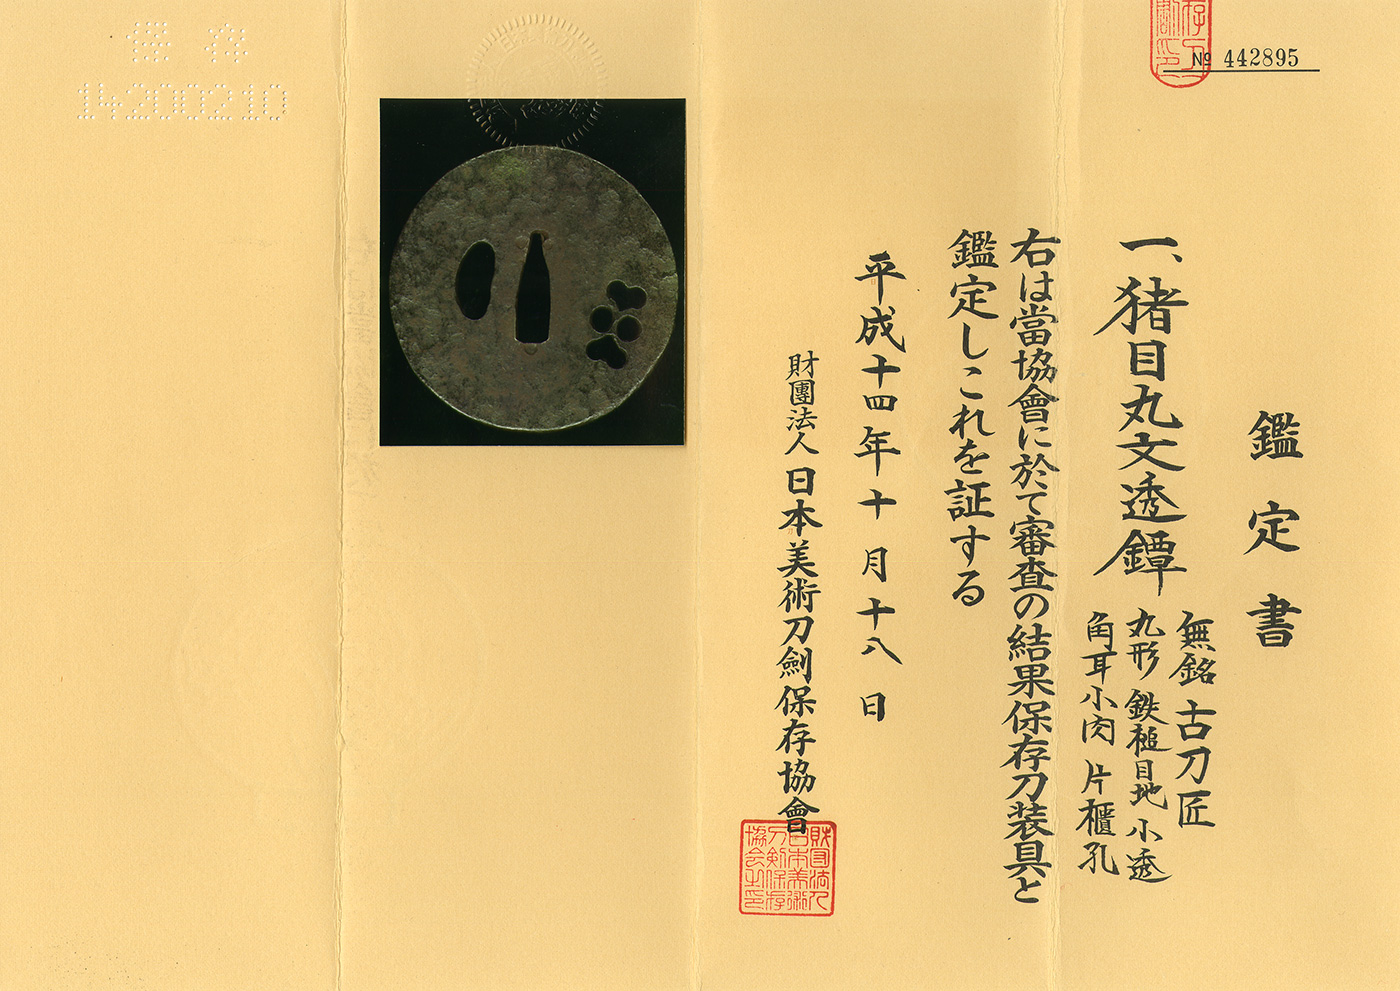 № 442895
鑑定書
一、猪目丸文透鐔
無銘 古刀匠
丸形 鉄槌目地 小透
角耳小肉 片櫃孔
右は當協會に於て審査の結果保存刀装具と
鑑定しこれを証する
平成十四年十月十八日
財團法人 日本美術刀劍保存協會
財団法人
日本美術
刀剣保存
協会之印
保存
14200210